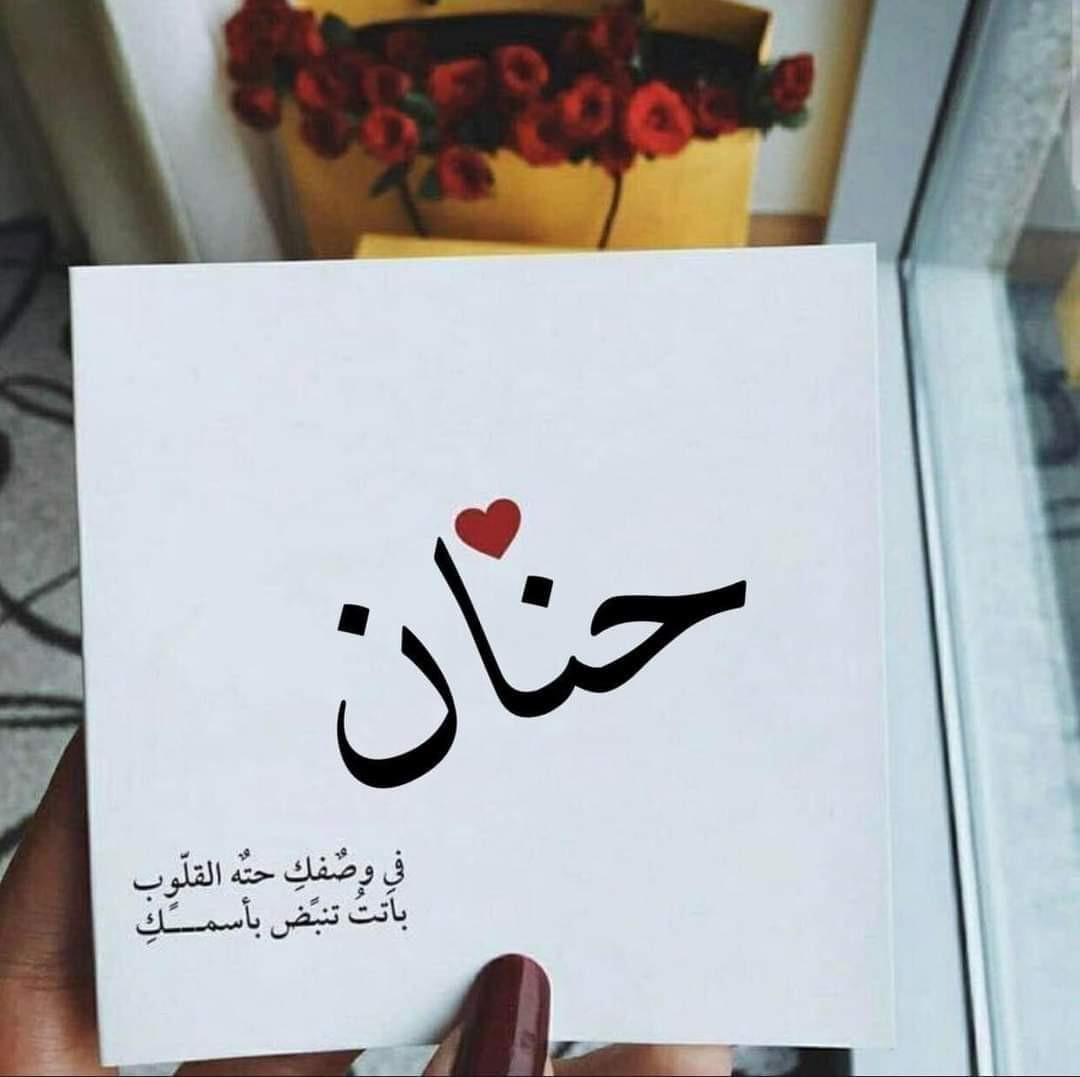 حنان
في وصٌفكِ حتٌه القلّوِب
باَتتُ تنبًض بأسمـــكًِ